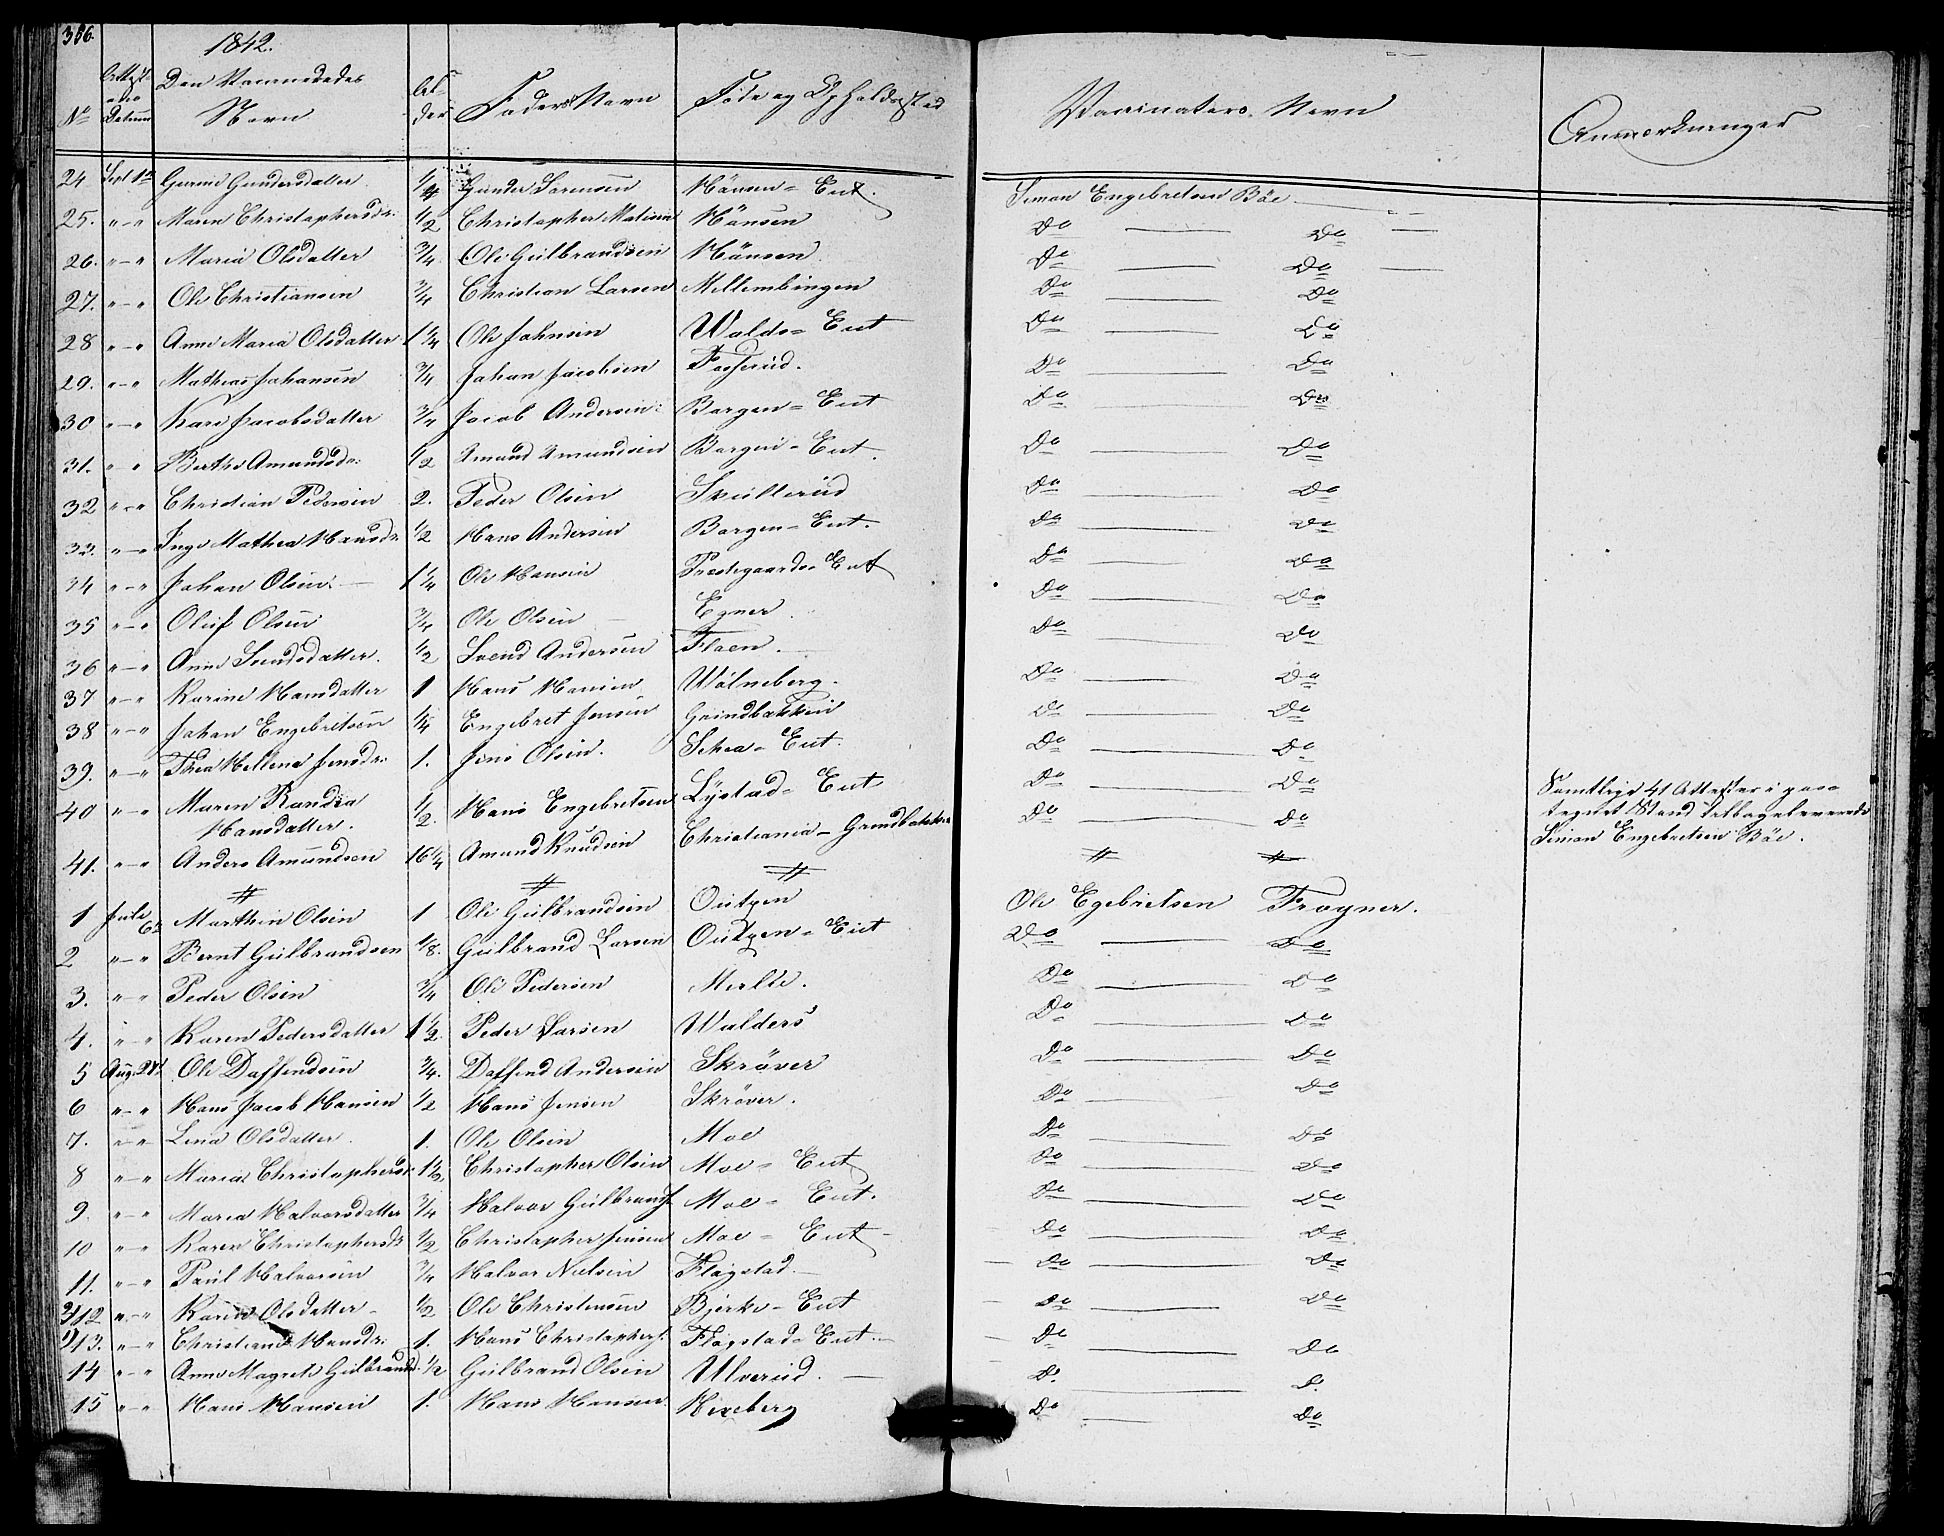 386.
1842.
No Attest. Datum Den Vaccineredes Navn Alder Faders Navn Føde og Opholdssted Vaccinateurs Navn Anmærkninger
24 Sept 1ste Gurine Gundersdatter 1/4 Gunder Sørensen Hånsen-Eut. Simon Engebretsen Böe
25. "-" Maren Christophersdr. 1/2 Christopher Hånsen Do Do
26. "-" Maria Olsdatter 3/4 Ole Gulbrandsen Hånsen Do Do
27. "-" Ole Christiansen 3/4 Christian Larsen Mellembingen Do Do
28 "-" Anne Maria Olsdatter 1 1/4 Ole Johnsen Walds-Eut Do Do
29. "-" Mathias Johansen 3/4 Johan Jacobsen Fosserud. Do Do
30 "-" Kari Jacobsdatter 3/4 Jacob Andersen Borgen-Eut Do Do
31. " " Berthe Amundsdr. 1/2 Amund Amundsen Borgen-Eut. Do Do
32 "-" Christian Pedersen 2. Peder Olsen Skullerud Do Do
33. "-" Inge Mathea Hansdr. 1/2 Hans Andersen Borgen-Eut. Do Do
34 "-" Johan Olsen. 1 1/4 Ole Hansen Prestegaards-Eut Do Do
35 "-" Oluf Olsen 3/4 Ole Olsen Egner Do Do
36 "-" Anne Svendsdatter. 1/2 Svend Andersen Floen. Do Do
37 "-" Karine Hansdatter 1 Hans Hansen Wålneberg. Do Do
38 "-" Johan Engebretsen 1/4 Engebret Jensen Grindbakken Do Do
39. "-" Thea Hellena Jensdr. 1. Jens Olsen. Schea-Eut. Do Do
40 "-" Maren Randia 1/2. Hans Engebretsen Lÿstad-Eut Do Do
Hansdatter.
41. "-" Anders Amundsen 16 1/4 Amund Knudsen Christiania-Grindbakken Do Do
Samtlige 41 Attester i paa
tegnet Stand tilbageleverede
Simon Engebretsen Böe.
1 Juli 6te Marthin Olsen 1 Ole Gulbrandsen Outgen Ole Egebretsen Frogner.
2 "-" Bernt Gulbrandsen 1/8. Gulbrand Larsen Outgen-Eut Do Do
3. "-" Peder Olsen 3/4 Ole Pedersen Melle. Do Do
4. "-" Karen Pedersdatter 1 1/2. Peder Larsen Walders Do Do
5 Aug. 28 Ole Daffendsen 3/4. Daffend Andersen Skrøver Do Do
6 "-" Hans Jacob Hansen 1/2 Hans Jensen Skrøver. Do Do
7. "-" Lena Olsdatter. 1. Ole Olsen Moe Do Do
8 "-" Maria Christophersdr. 1 1/2 Christopher Olsen Moe-Eut Do Do
9. "-" Maria Halvorsdatter 3/4 Halvor Gulbrands. Moe-Eut. Do Do
10 "-" Karen Christophersdr 1/2 Christopher Jensen Moe-Eut Do Do
11. "-" Paul Halvorsen 3/4 Halvor Nielsen Flagstad Do Do
12 "-" Karen Olsdatter 1/2 Ole Christensen Bjerke-Eut Do Do
13. "-" Christiane Hansdr. 1. Hans Christophers. Flagstad-Eut. Do Do
14 "-" Anne Magrete Gulbrands. 1/2 Gulbrand Olsen Ulverud. D. D.
15 "-" Hans Hansen 1. Hans Hansen. Hexeberg Do Do